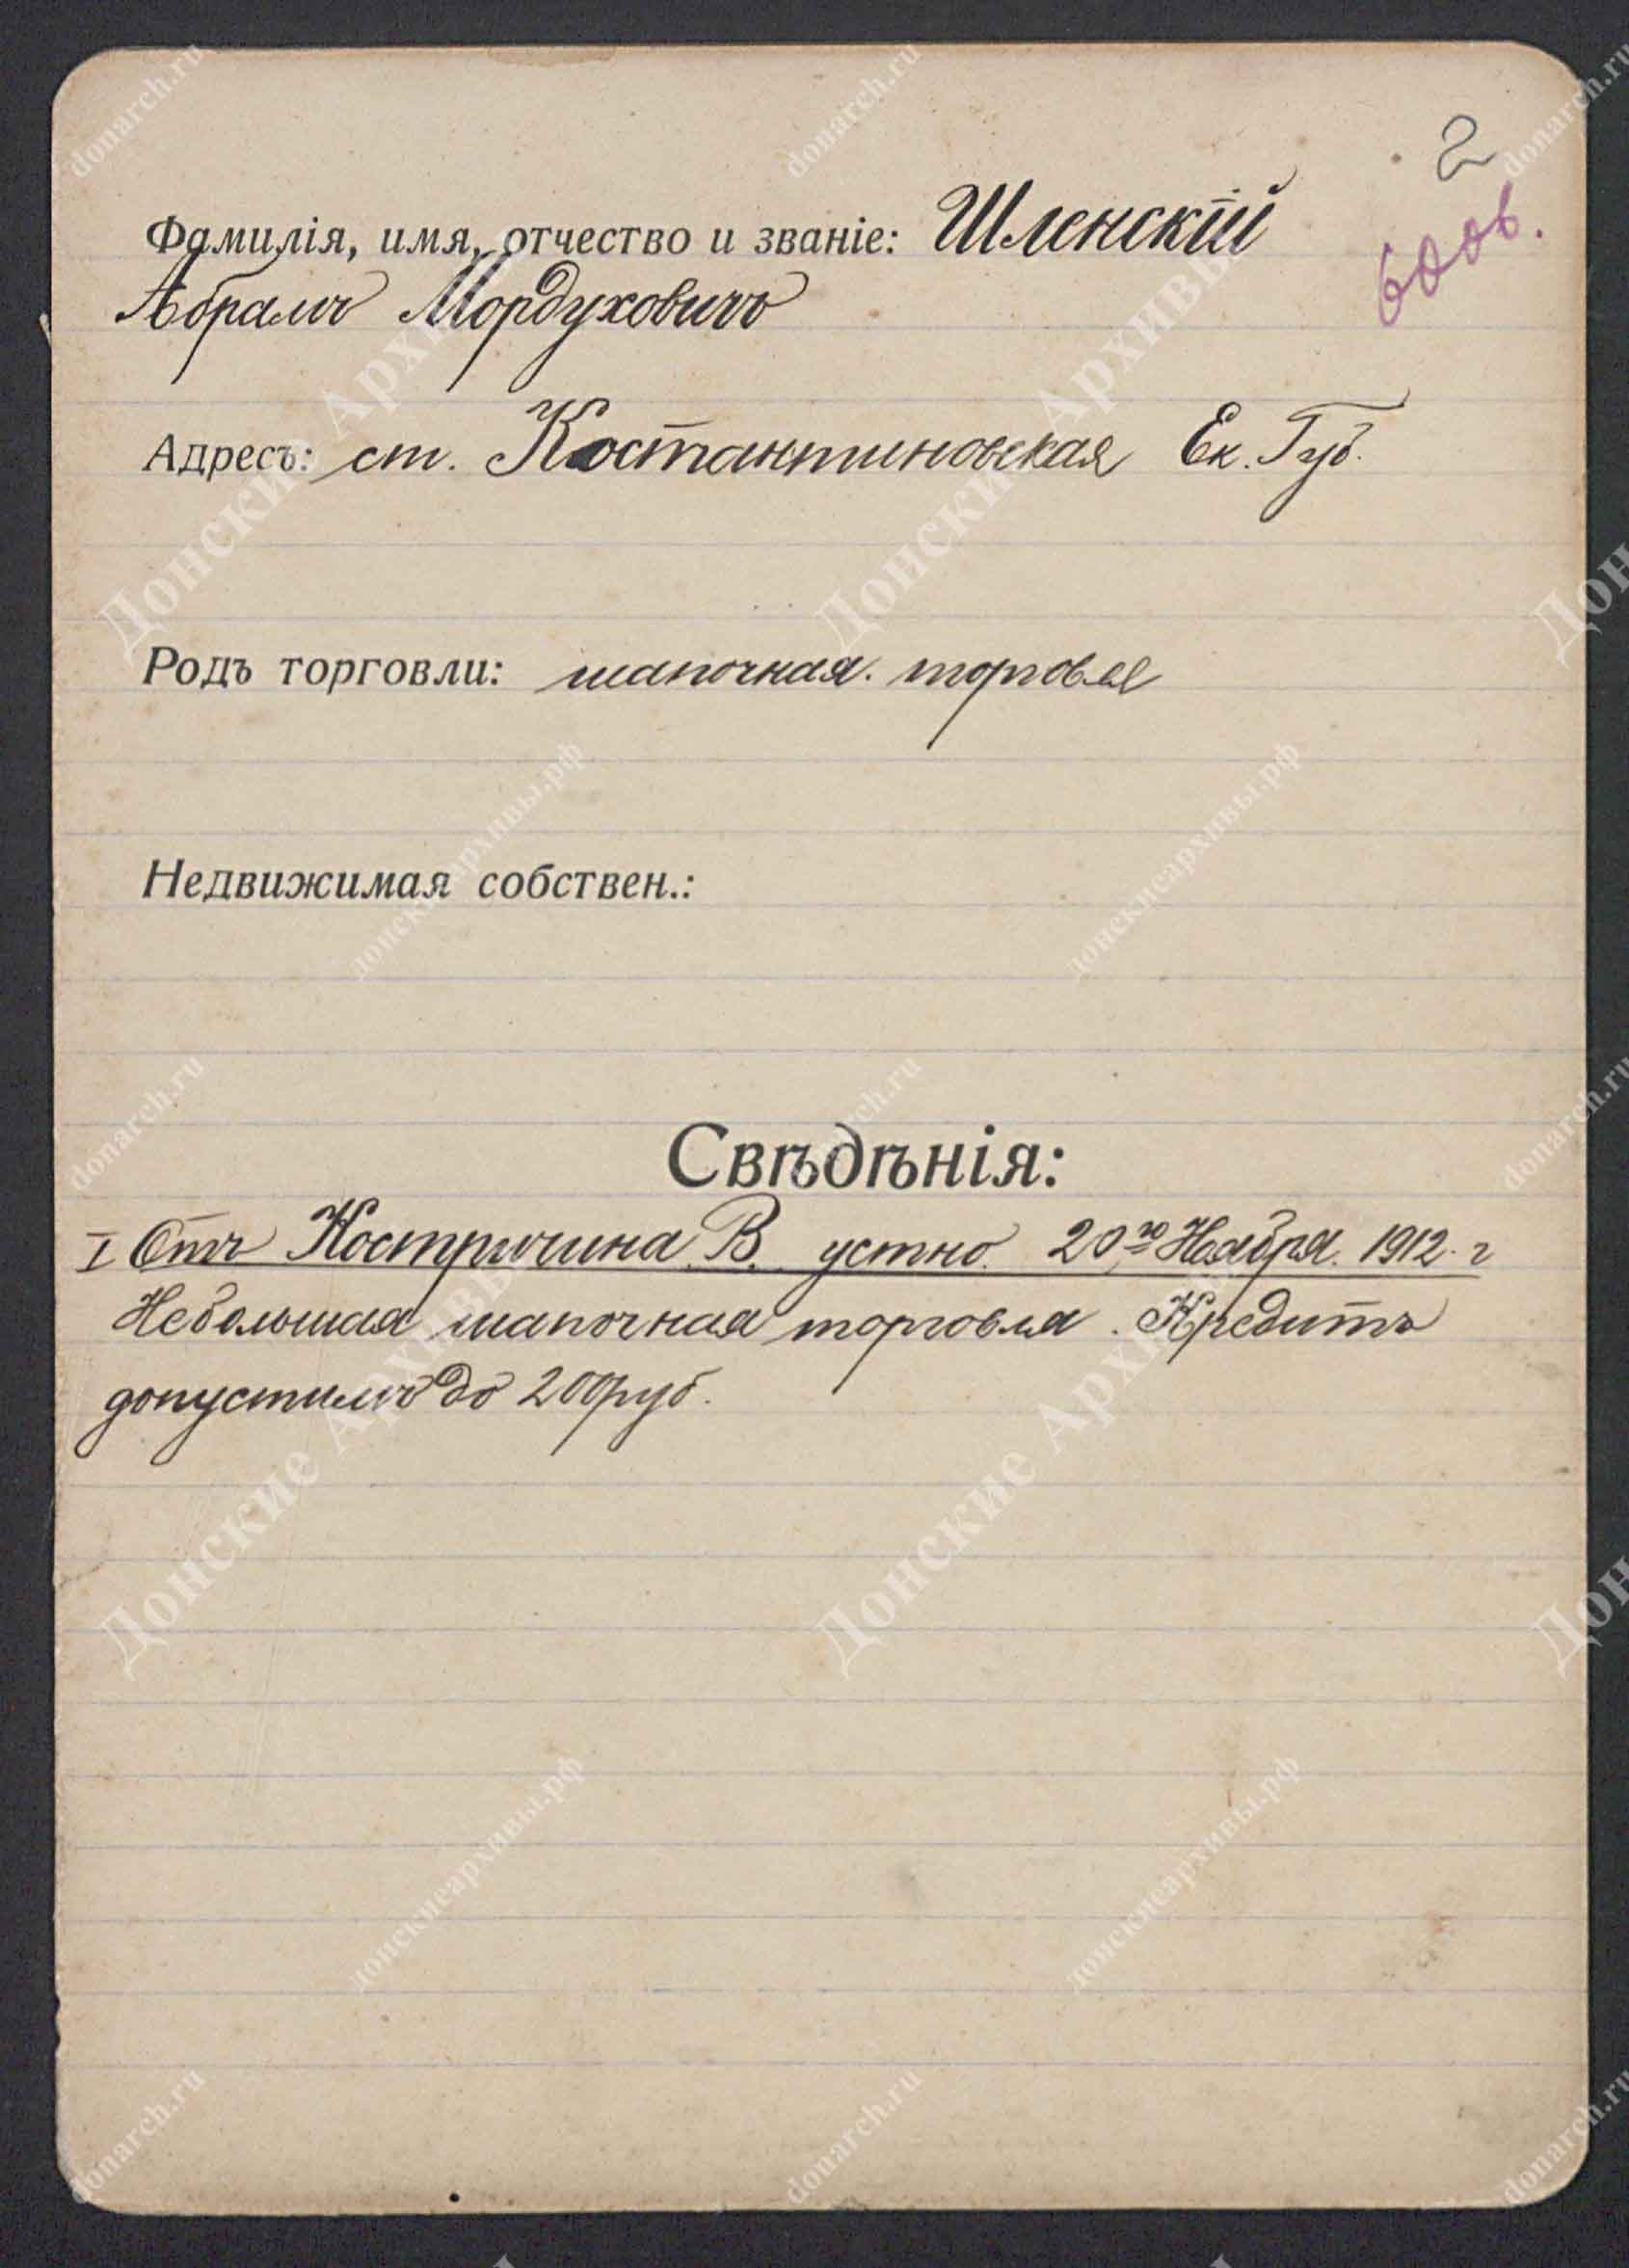 2
600 в.
Фамилія, имя, отчество и званіе: Шленскій
Абрамъ Мордуховичъ
Адресъ: ст. Костантиновская Ек. Губ.
Родъ торговли: шапочная. торговля
Недвижимая собствен.:
Свѣдѣнія:
I Отъ Костричина В. устно. 20го Ноября. 1912. г
Небольшая шапочная торговля. Кредитъ
допустимъ до 200 руб.
donarch.ru
Донские Архивы
донскиеархивы.рф